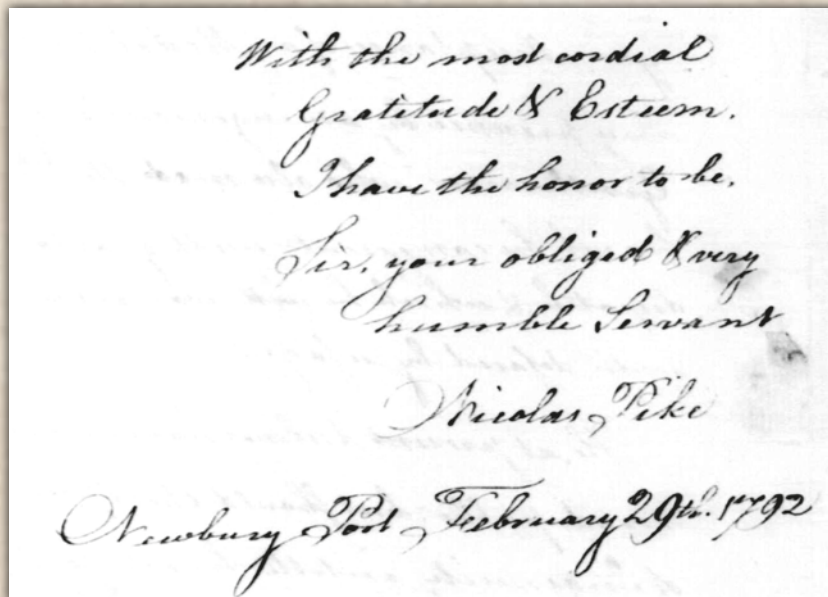 With the most cordial
Gratitude & Esteem.
I have the honor to be,
Sir, your obliged & very
humble Servant
Nicolas Pike
Newbury Port, February 29th. 1792